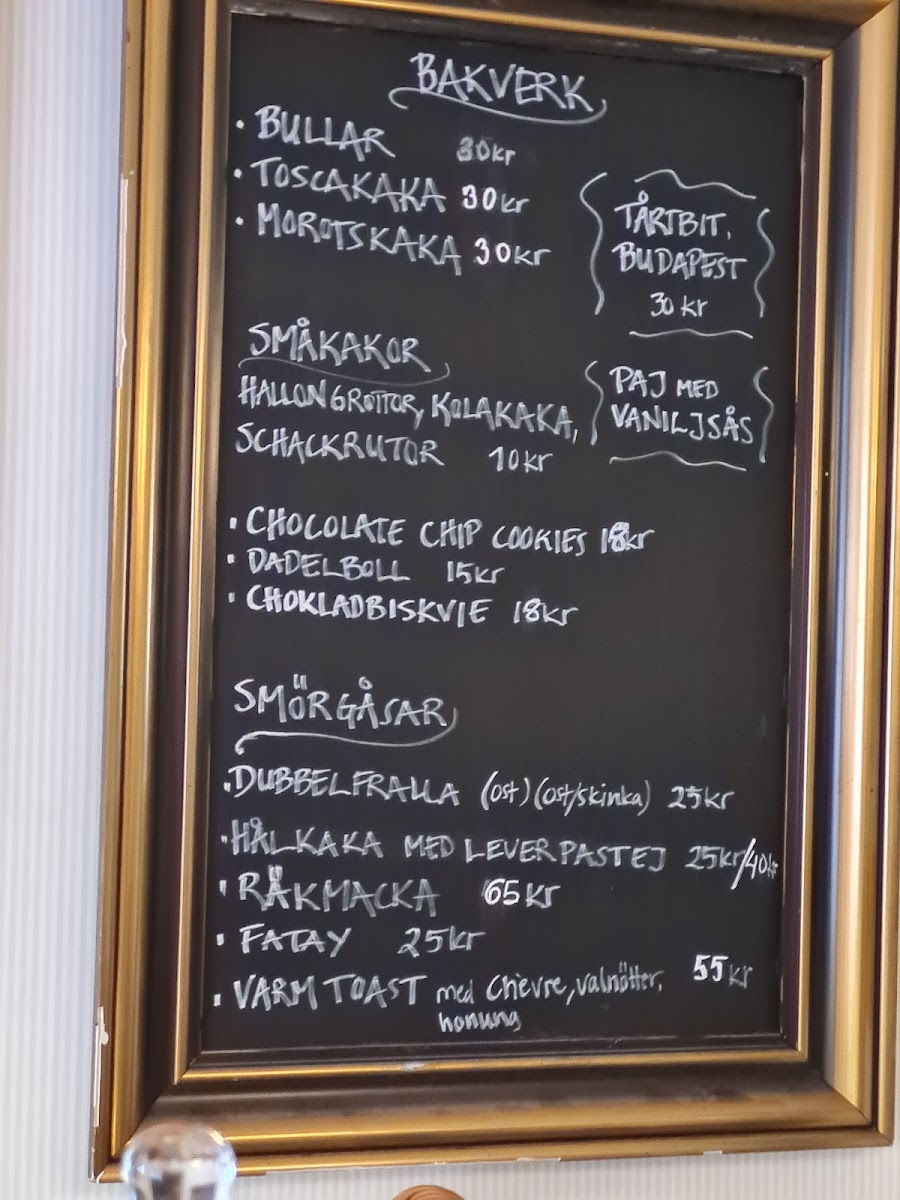 BAKVERK
• BULLAR 30kr
• TOSCAKAKA 30kr
• MOROTSKAKA 30kr
TÅRTBIT,
BUDAPEST
30 kr
SMÅKAKOR
HALLONGROTTOR, KOLAKAKA,
SCHACKRUTOR 10kr
PAJ MED
VANILJSÅS
• CHOCOLATE CHIP COOKIES 18kr
• DADELBOLL 15kr
• CHOKLADBISKVIE 18kr
SMÖRGÅSAR
• DUBBELFRALLA (ost) (ost/skinka) 25kr
• HÅLKAKA MED LEVERPASTEJ 25kr/40kr
• RÄKMACKA 65kr
• FATAY 25kr
• VARM TOAST med Chèvre, valnötter, 55kr
honung